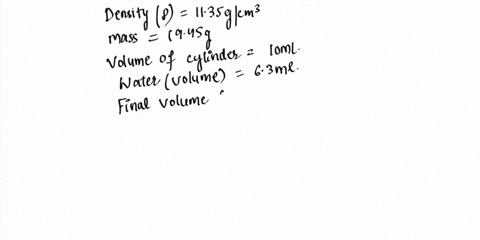 Density (ρ) = 11.35 g/cm³
mass = 19.45g
Volume of cylinder = 10ml.
Water (volume) = 6.3 ml.
Final volume